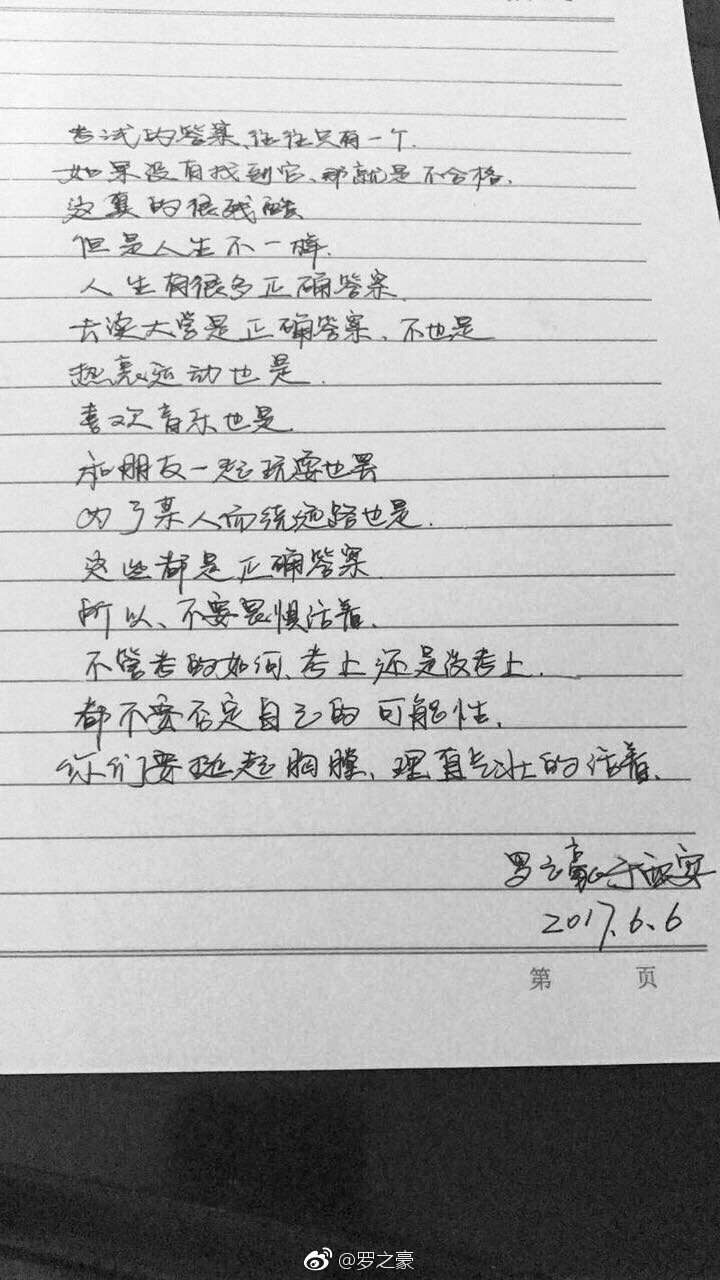 考试的答案、往往只有一个.
如果没有找到它、那就是不合格.
这真的很残酷
但是人生不一样.
人生有很多正确答案.
去读大学是正确答案、不也是
热衷运动也是.
喜欢音乐也是.
和朋友一起玩耍也罢
为了某人而绕远路也是.
这些都是正确答案.
所以、不要畏惧活着.
不管考的如何、考上还是没考上.
都不要否定自己的可能性.
你们要挺起胸膛、理直气壮的活着.
罗之豪于西安
2017.6.6
第 页
@罗之豪